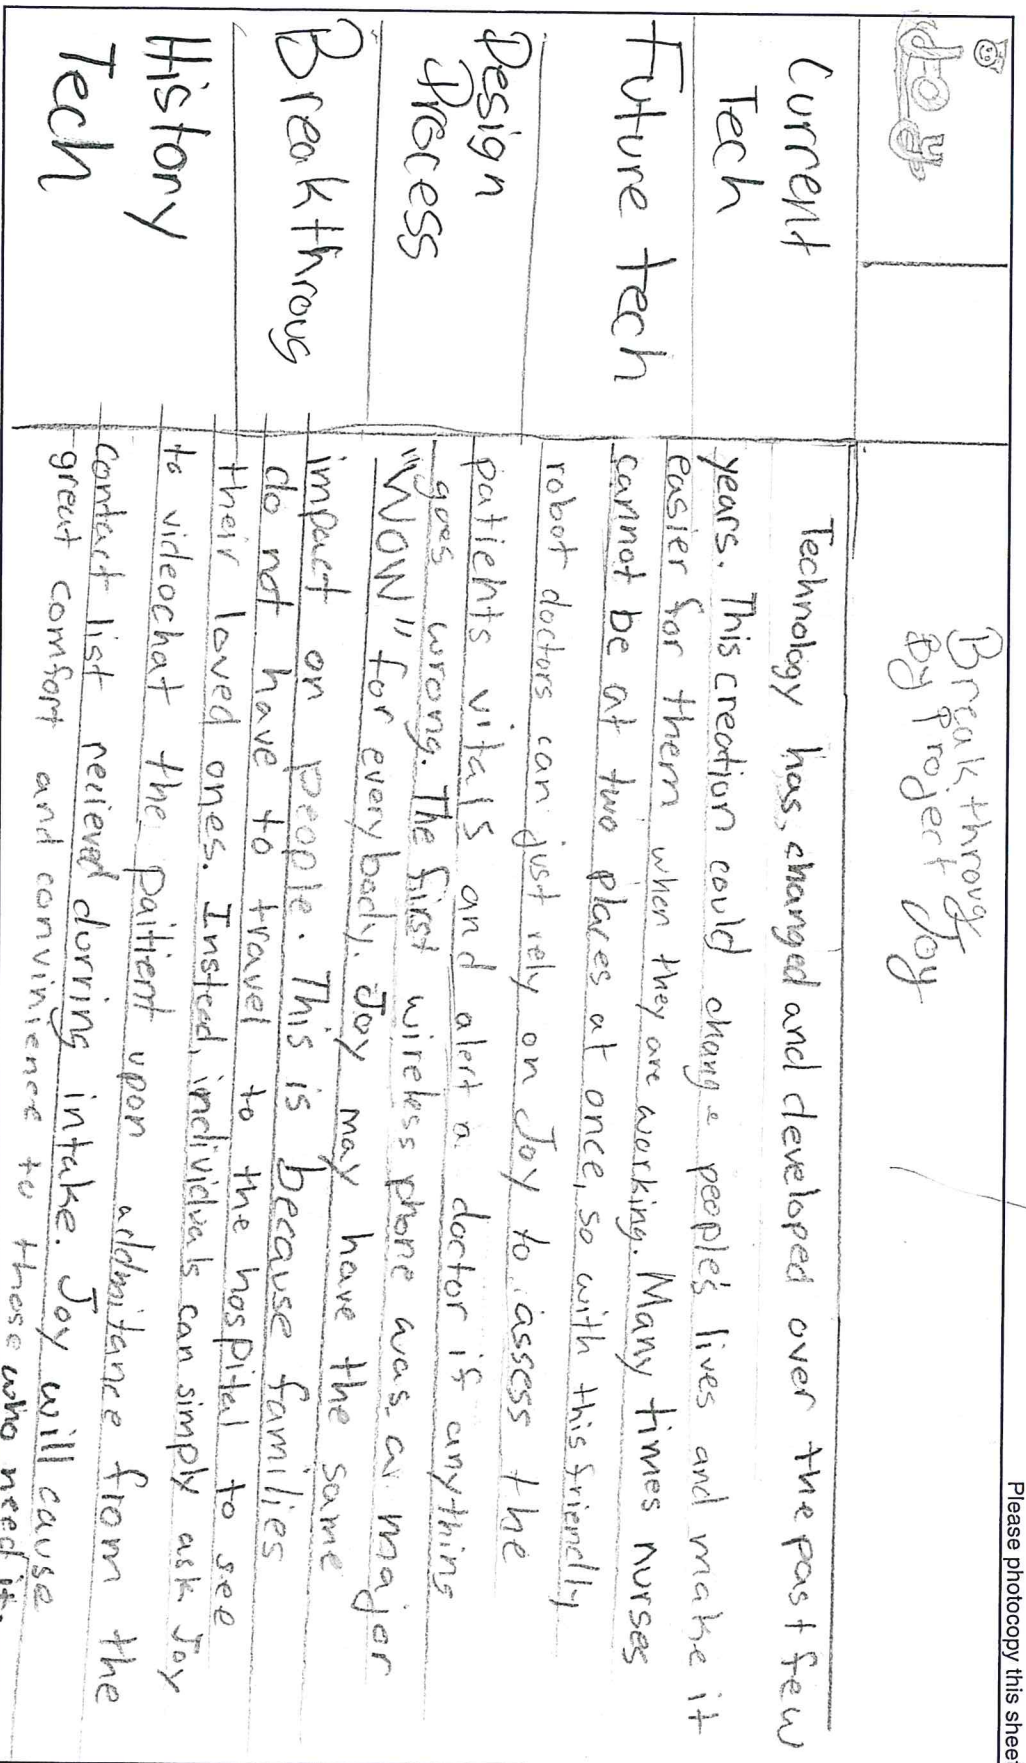 Please photocopy this sheet
Joy
Breakthroug
By project Joy
Current
Tech
Future tech
Design
Process
Breakthroug
History
Tech
Technology has changed and developed over the past few
years. This creation could change people's lives and make it
easier for them when they are working. Many times nurses
cannot be at two places at once, so with this friendly
robot doctors can just rely on Joy to assess the
patients vitals and alert a doctor if anything
goes wrong. The first wireless phone was a majer
"WOW" for everybody. Joy may have the same
impact on people. This is because families
do not have to travel to the hospital to see
their loved ones. Instead, individuals can simply ask Joy
to videochat the paitient upon addmitance from the
contact list recieved durring intake. Joy will cause
great comfort and convinience to those who need it.